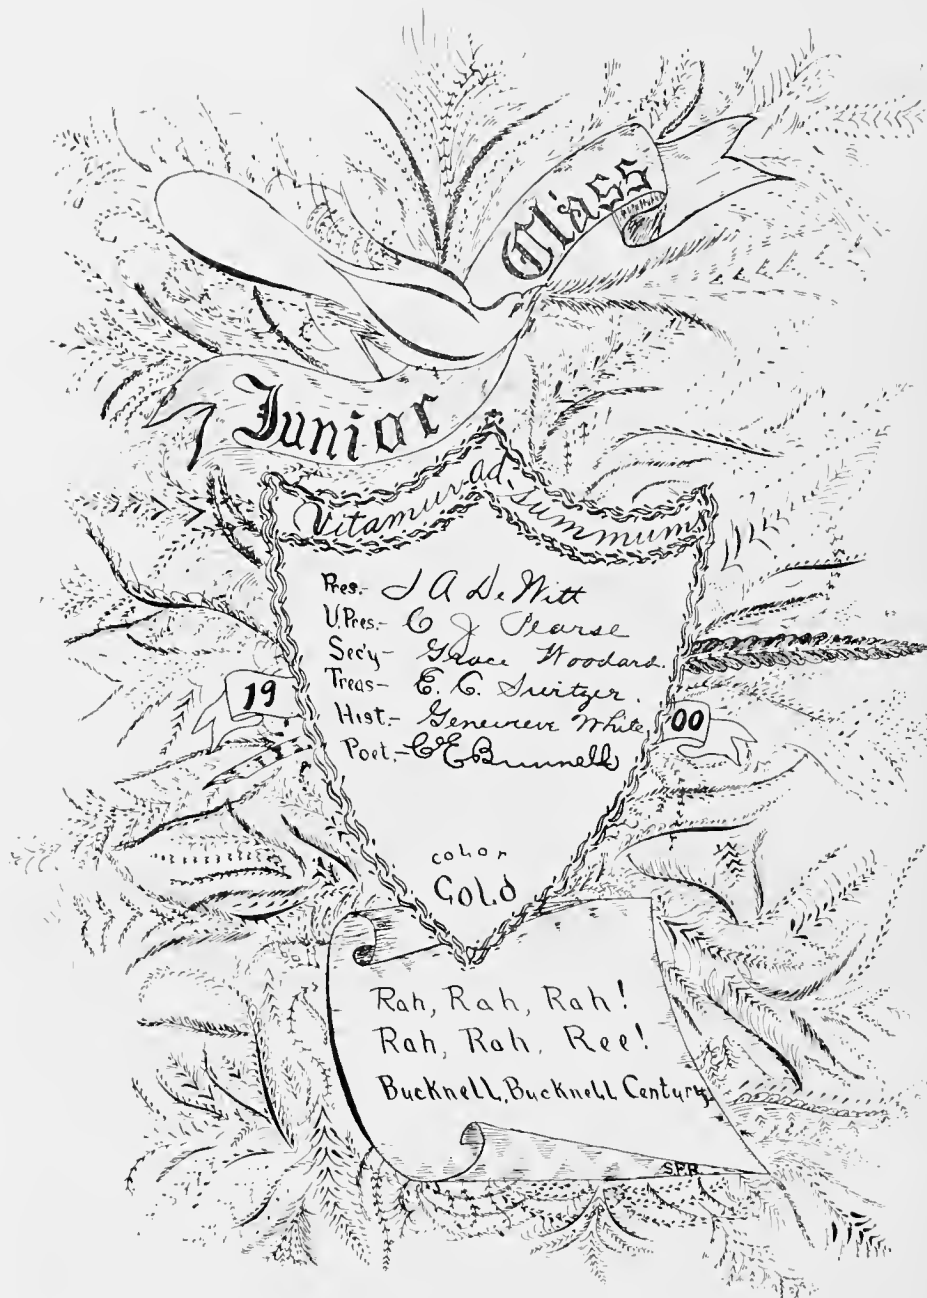 Class
Junior
Vitamur ad summum
Pres.- J A DeWitt
V.Pres.- C J Pearse
Sec'y- Grace Woodard.
Treas- E. C. Switzer.
Hist.- Genevieve White
Poet.- C E Bunnell
19 00
Color
Gold
Rah, Rah, Rah!
Rah, Rah, Ree!
Bucknell, Bucknell Century,
SFR